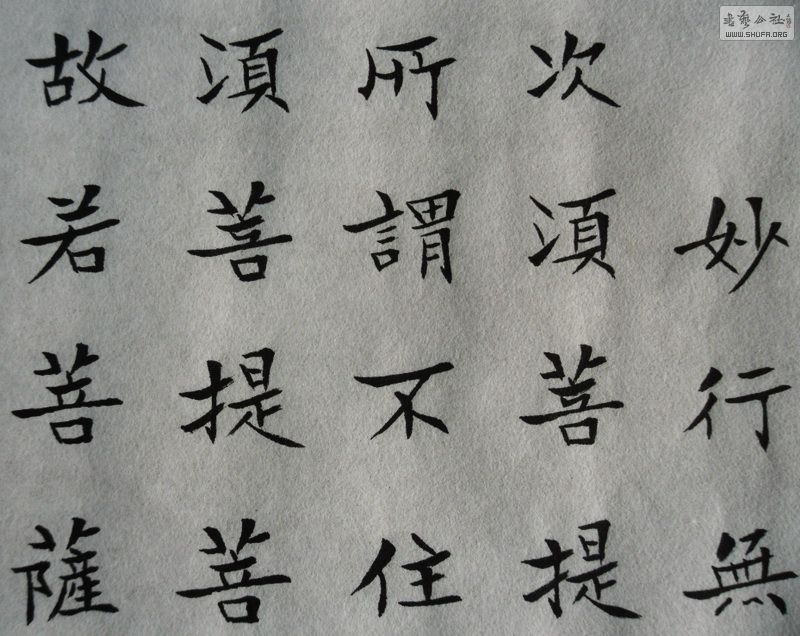 妙行無
次須菩提
所謂不住
須菩提菩
故若菩薩
書藝公社
WWW.SHUFA.ORG